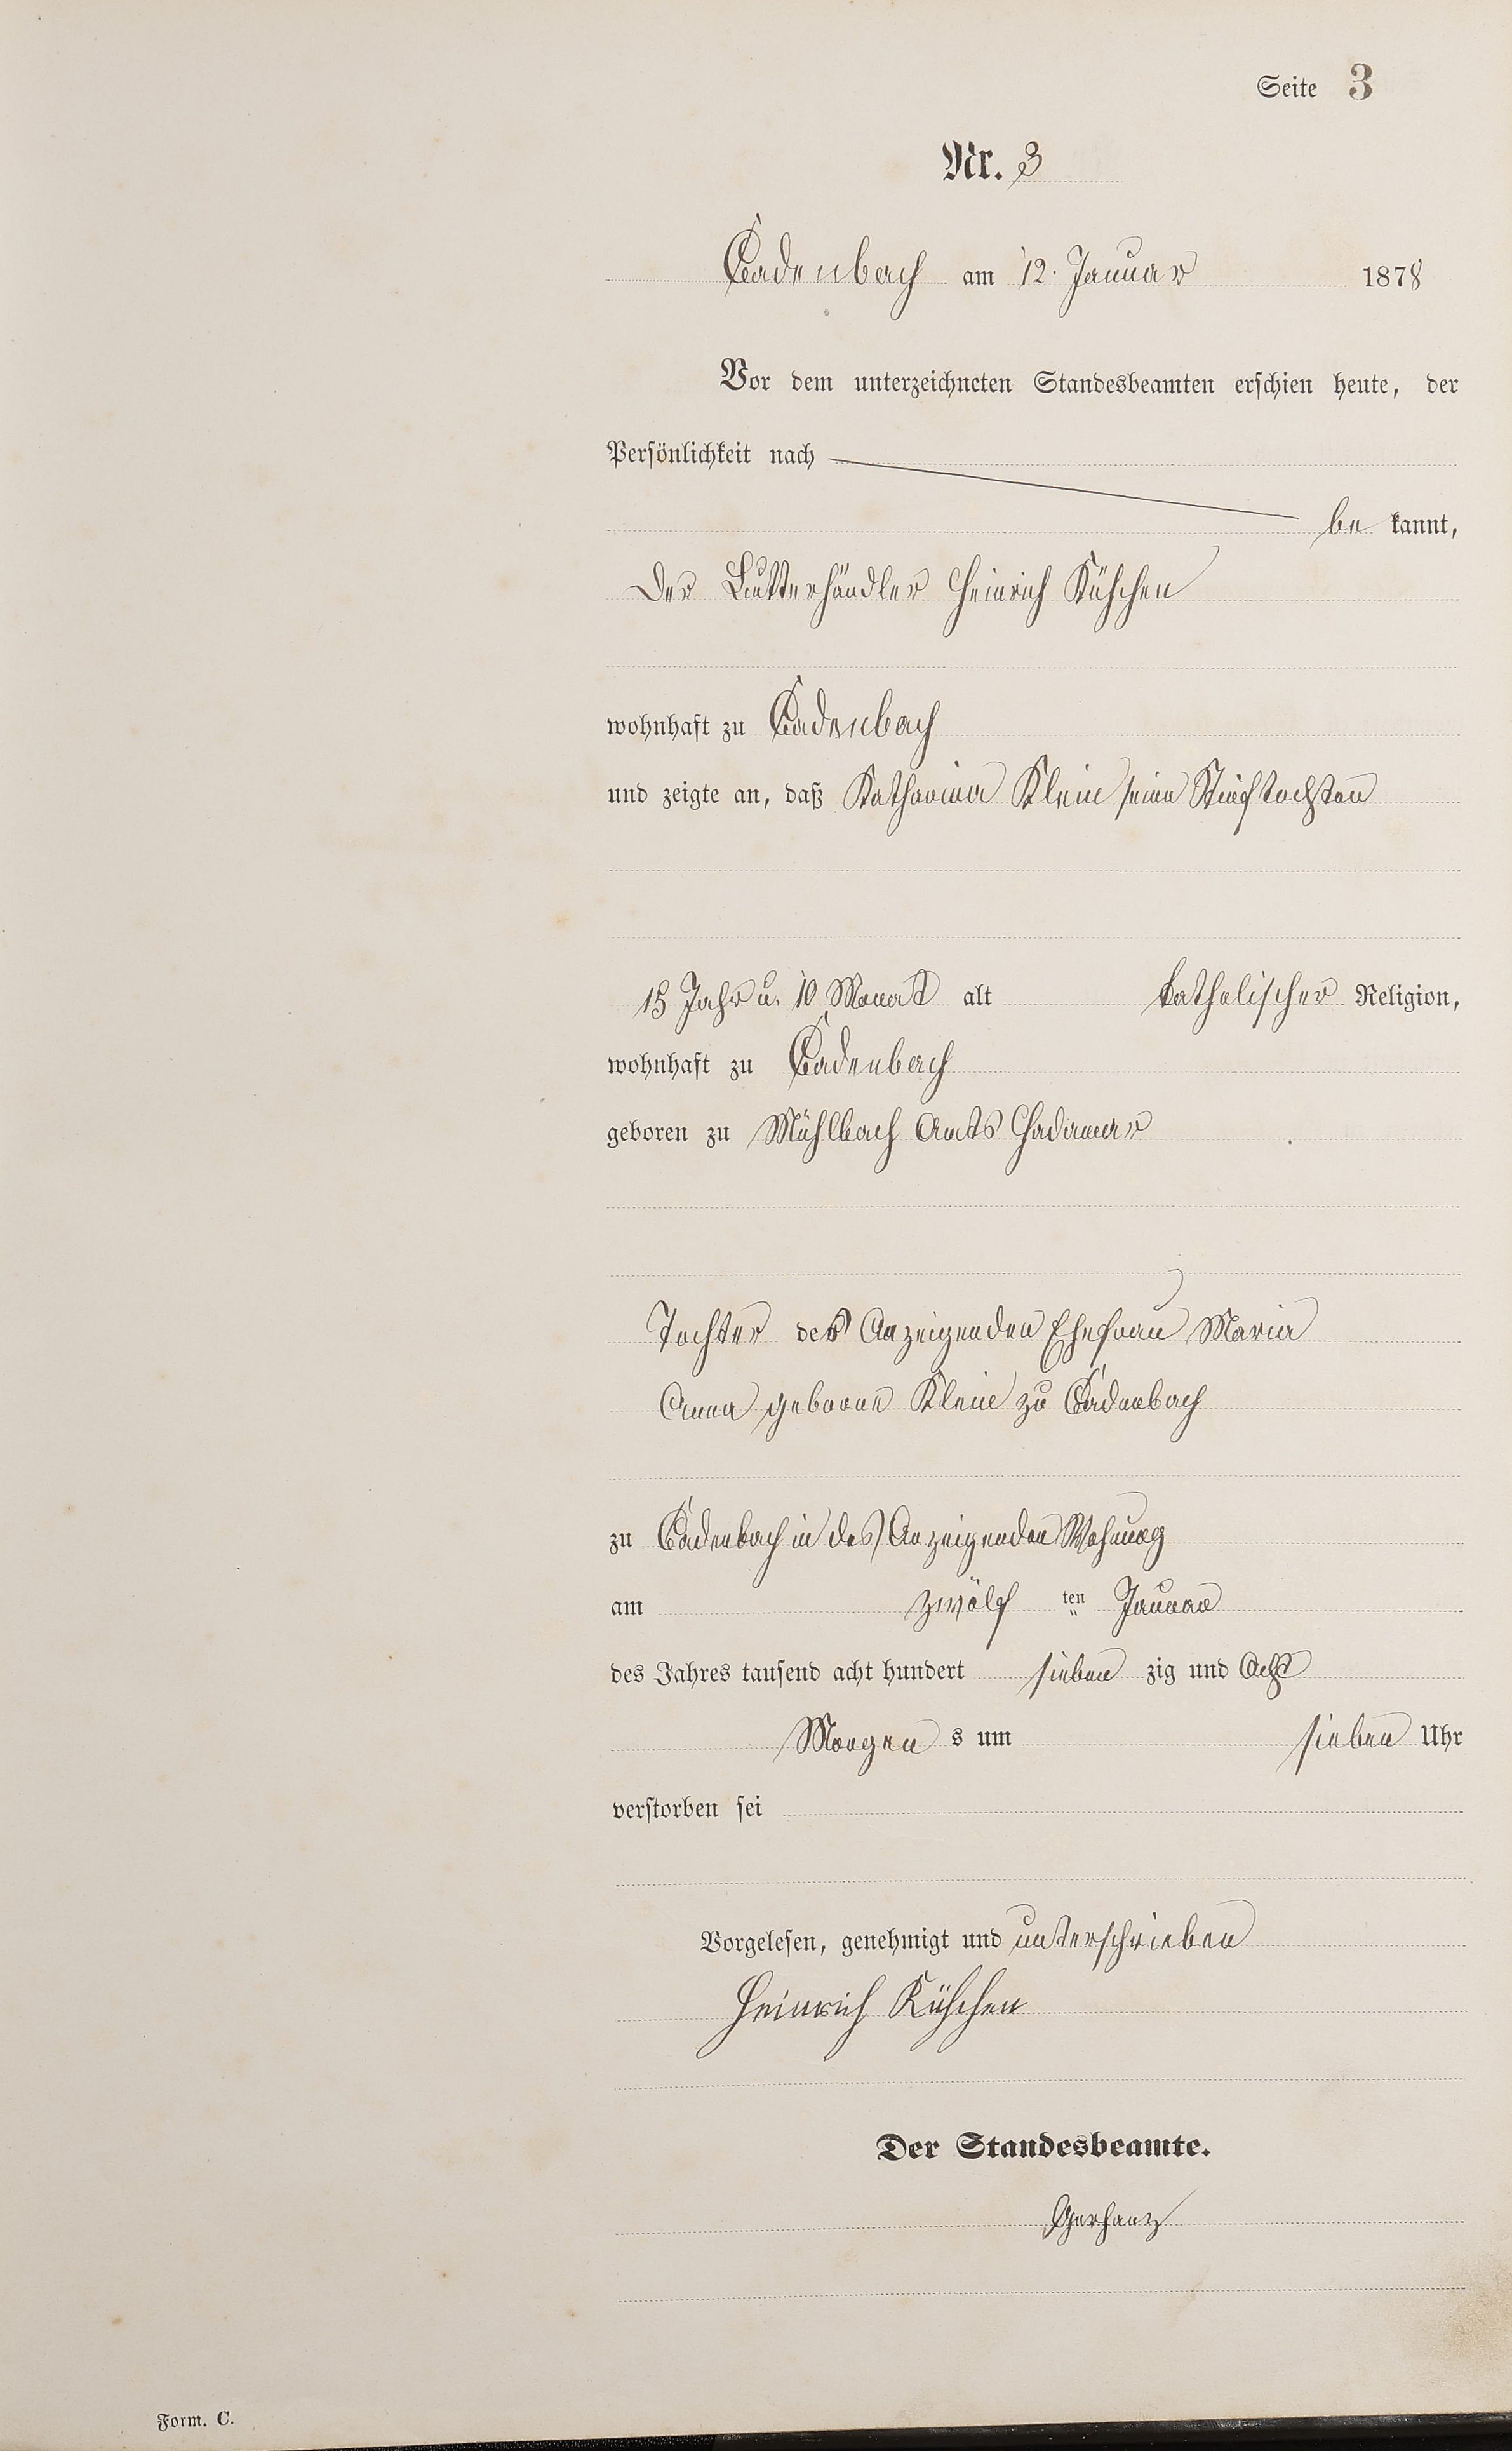 Seite 3
Nr. 3
Cadenbach am 12. Januar 1878
Vor dem unterzeichneten Standesbeamten erschien heute, der
Persönlichkeit nach
be kannt,
Der Butterhändler Heinrich Kühchen
wohnhaft zu Cadenbach
und zeigte an, daß Katharina Klein seine Stieftochter
15 Jahr u. 10 Monat alt katholischer Religion,
wohnhaft zu Cadenbach
geboren zu Mühlbach Amts Hadamar
Tochter des Anzeigenden Ehefrau Maria
Anna geborne Klein zu Cadenbach
zu Cadenbach in des Anzeigenden Wohnung
am zwölf ten Januar
des Jahres tausend acht hundert sieben zig und Acht
Morgen s um sieben Uhr
verstorben sei
Vorgelesen, genehmigt und unterschrieben
Heinrich Kühchen
Der Standesbeamte.
Gerharz
Form. C.